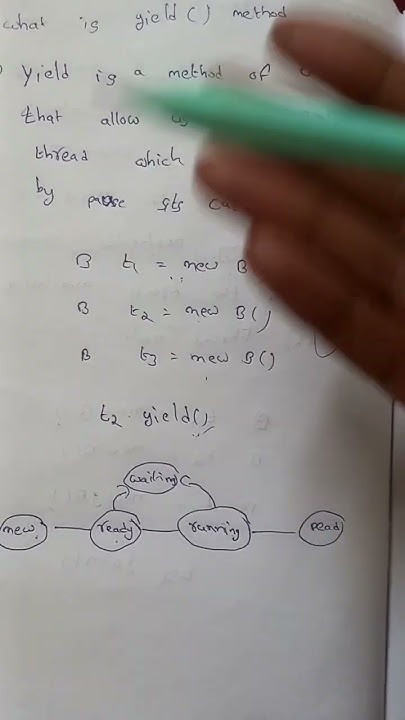 what is yield() method
yield is a method of
that allow us
thread which
by pause its
B t1 = new B
B t2 = new B()
B t3 = new B()
t2. yield()
waiting
new ready running Dead